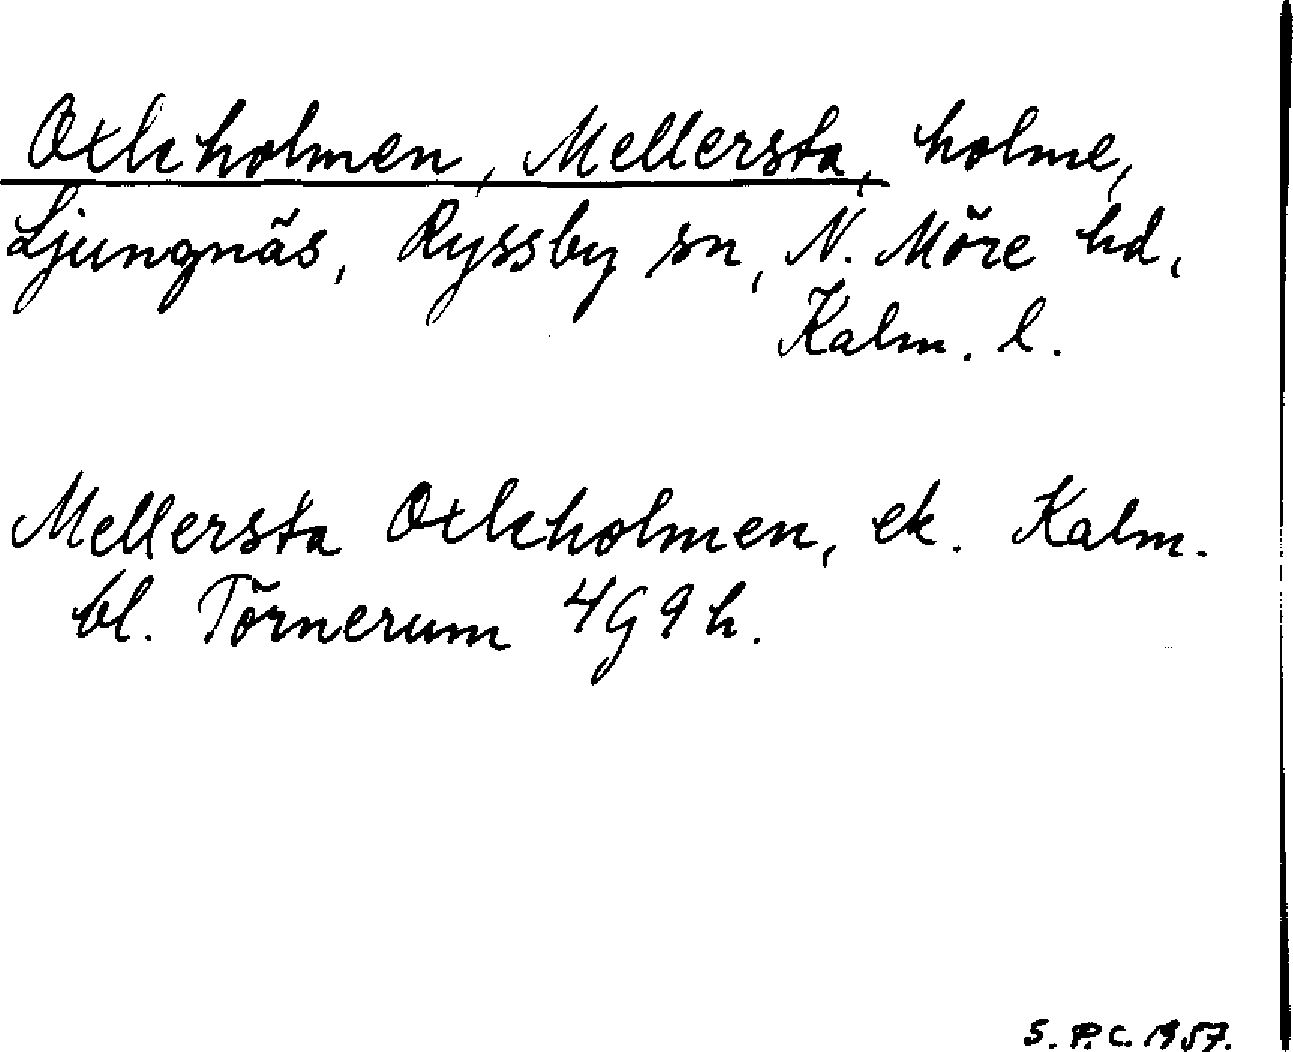 Oxleholmen, Mellersta, holme,
Ljungnäs, Ryssby sn, N. Möre hd,
Kalm. l.
Mellersta Oxleholmen, ek. Kalm.
bl. Törnerum 4G9h.
S.P.C. 1957.